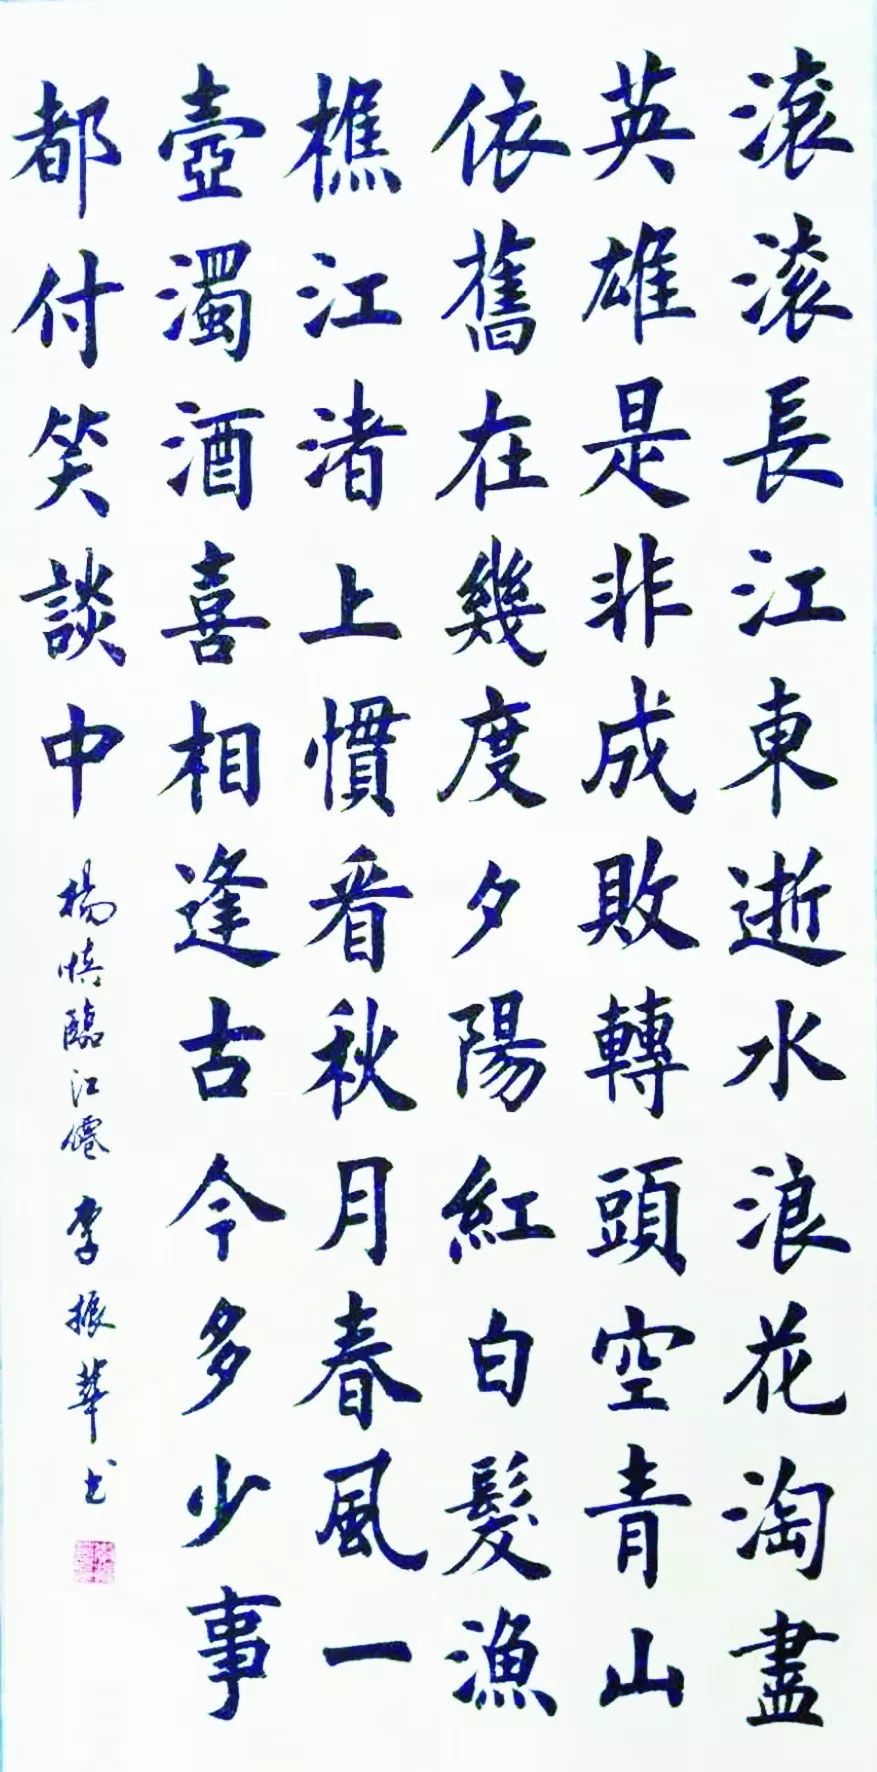 滚滚長江東逝水浪花淘盡
英雄是非成敗轉頭空青山
依舊在幾度夕陽紅白髮漁
樵江渚上慣看秋月春風一
壺濁酒喜相逢古今多少事
都付笑談中
楊慎臨江僊 李振華书